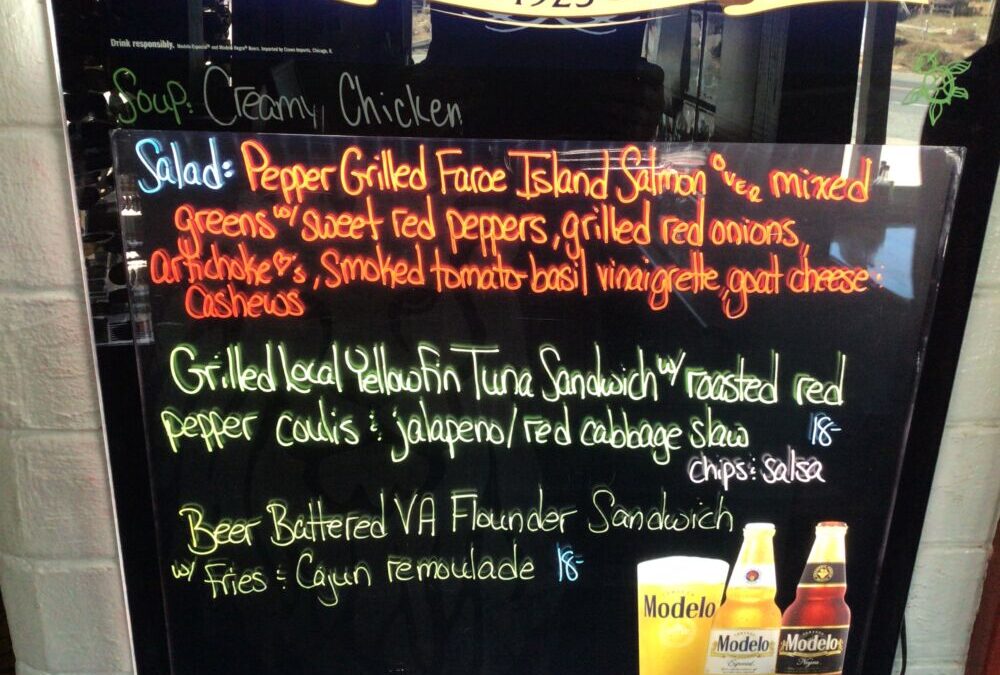 1925
Drink responsibly. Modelo Especial® and Modelo Negra® Beers. Imported by Crown Imports, Chicago, IL
Soup: Creamy Chicken
Salad: Pepper Grilled Faroe Island Salmon OVER mixed
greens w/ sweet red peppers, grilled red onions,
artichoke ♡'s, smoked tomato-basil vinaigrette, goat cheese &
Cashews
Grilled Local Yellowfin Tuna Sandwich w/ roasted red
pepper coulis & jalapeno/red cabbage slaw 18-
chips & salsa
Beer Battered VA Flounder Sandwich
w/ Fries & Cajun remoulade 18-
Modelo
Modelo
Especial
Modelo
Negra